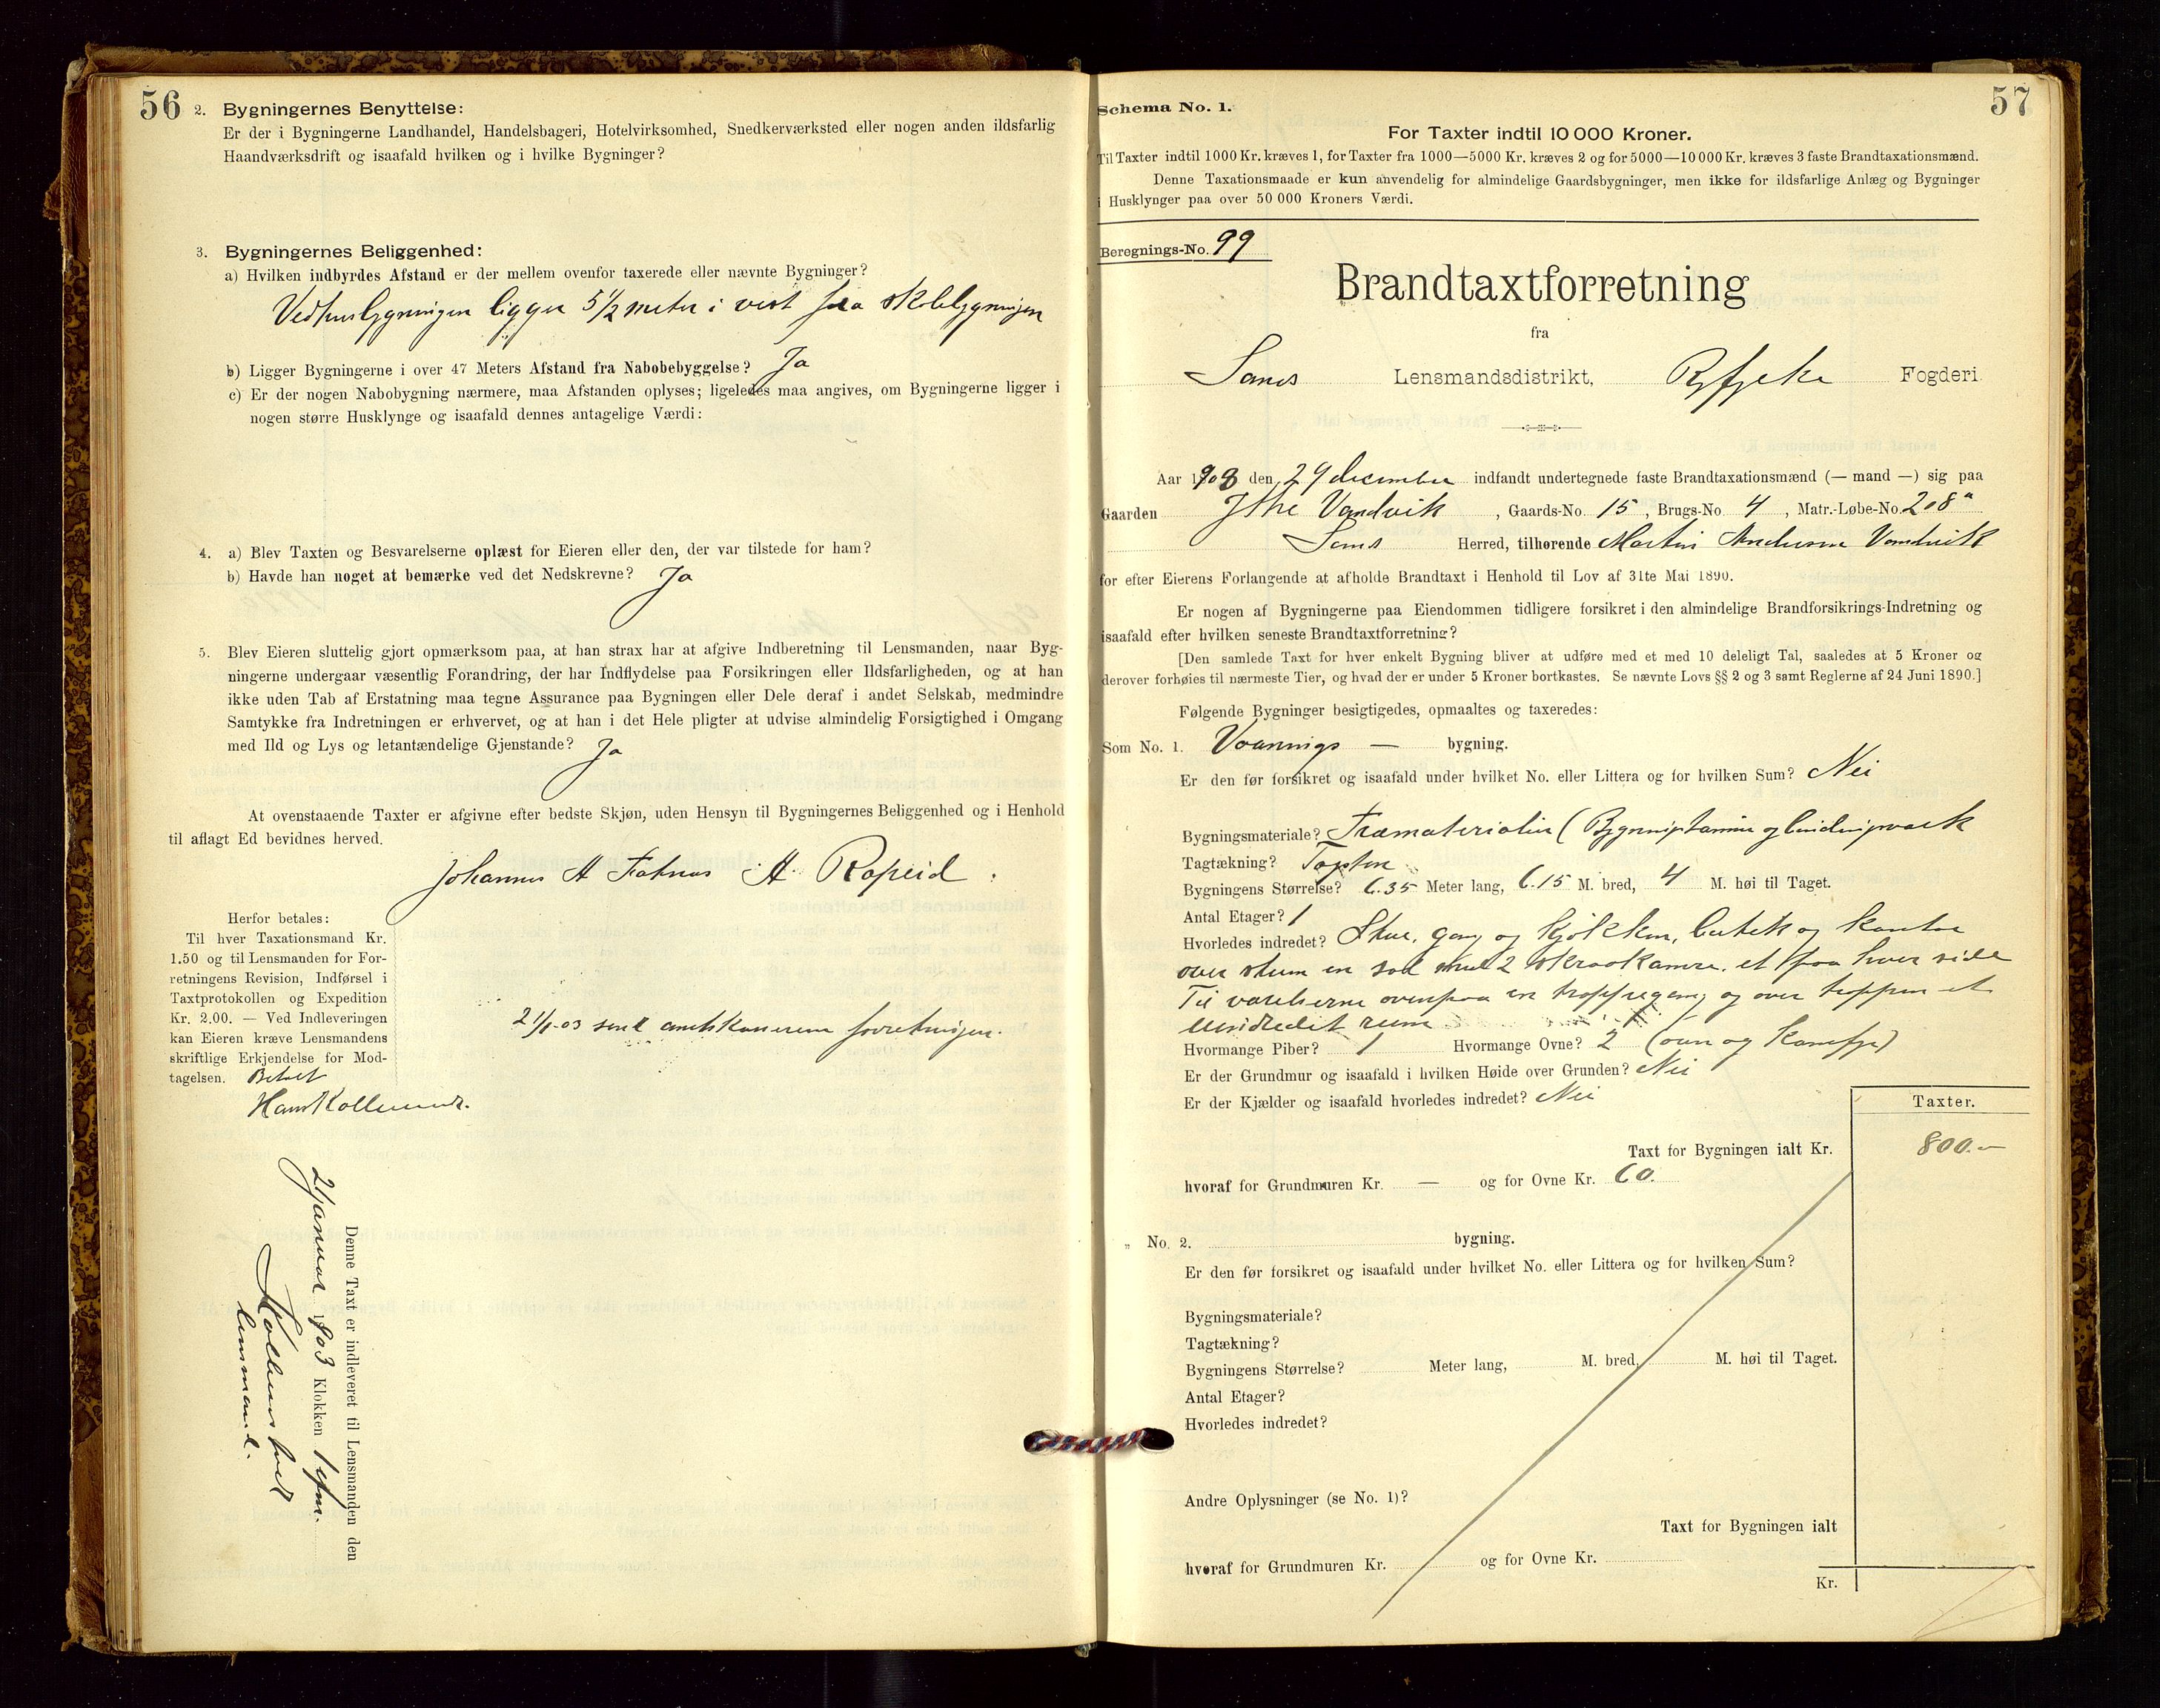 56
2. Bygningernes Benyttelse:
Er der i Bygningerne Landhandel, Handelsbageri, Hotelvirksomhed, Snedkerværksted eller nogen anden ildsfarlig
Haandværksdrift og isaafald hvilken og i hvilke Bygninger?
3. Bygningernes Beliggenhed:
a) Hvilken indbyrdes Afstand er der mellem ovenfor taxerede eller nævnte Bygninger?
Vedhusbygningen ligger 5 1/2 meter i vest fra skolebygningen
b) Ligger Bygningerne i over 47 Meters Afstand fra Nabobebyggelse? Ja
c) Er der nogen Nabobygning nærmere, maa Afstanden oplyses; ligeledes maa angives, om Bygningerne ligger i
nogen større Husklynge og isaafald dennes antagelige Værdi:
4. a) Blev Taxten og Besvarelserne oplæst for Eieren eller den, der var tilstede for ham?
b) Havde han noget at bemærke ved det Nedskrevne? Ja
5. Blev Eieren sluttelig gjort opmærksom paa, at han strax har at afgive Indberetning til Lensmanden, naar Byg-
ningerne undergaar væsentlig Forandring, der har Indflydelse paa Forsikringen eller Ildsfarligheden, og at han
ikke uden Tab af Erstatning maa tegne Assurance paa Bygningen eller Dele deraf i andet Selskab, medmindre
Samtykke fra Indretningen er erhvervet, og at han i det Hele pligter at udvise almindelig Forsigtighed i Omgang
med Ild og Lys og letantændelige Gjenstande? Ja
At ovenstaaende Taxter er afgivne efter bedste Skjøn, uden Hensyn til Bygningernes Beliggenhed og i Henhold
til aflagt Ed bevidnes herved.
Johannes A A. Ropeid.
Herfor betales:
Til hver Taxationsmand Kr.
1.50 og til Lensmanden for For-
retningens Revision, Indførsel i
Taxtprotokollen og Expedition
Kr. 2,00. — Ved Indleveringen
kan Eieren kræve Lensmandens
skriftlige Erkjendelse for Mod-
tagelsen. Betalt
2 1/1-03 sendt forretningen.
Denne Taxt er indleveret til Lensmanden den
2 januar 1903 Klokken 1 efm.
lensmand.
57
Schema No. 1.
For Taxter indtil 10 000 Kroner.
Til Taxter indtil 1000 Kr. kræves 1, for Taxter fra 1000—5000 Kr. kræves 2 og for 5000—10 000 Kr. kræves 3 faste Brandtaxationsmænd.
Denne Taxationsmaade er kun anvendelig for almindelige Gaardsbygninger, men ikke for ildsfarlige Anlæg og Bygninger
i Husklynger paa over 50 000 Kroners Værdi.
Beregnings-No. 99
Brandtaxtforretning
fra
Sands Lensmandsdistrikt, Ryfylke Fogderi
Aar 1903 den 29 december indfandt undertegnede faste Brandtaxationsmænd (— mand —) sig paa
Gaarden Ytre Vandvik, Gaards-No. 15, Brugs-No. 4, Matr.-Løbe-No. 208a
Sands Herred, tilhørende Martin Andersen Vandvik
for efter Eierens Forlangende at afholde Brandtaxt i Henhold til Lov af 31te Mai 1890.
Er nogen af Bygningerne paa Eiendommen tidligere forsikret i den almindelige Brandforsikrings-Indretning og
isaafald efter hvilken seneste Brandtaxtforretning?
[Den samlede Taxt for hver enkelt Bygning bliver at udføre med et med 10 deleligt Tal, saaledes at 5 Kroner og
derover forhøies til nærmeste Tier, og hvad der er under 5 Kroner bortkastes. Se nævnte Lovs §§ 2 og 3 samt Reglerne af 24 Juni 1890.]
Følgende Bygninger besigtigedes, opmaaltes og taxeredes:
Som No. 1. Vaanings — bygning.
Er den før forsikret og isaafald under hvilket No. eller Littera og for hvilken Sum? Nei
Bygningsmateriale? Træmaterialier (Bygningstømmer og bindingværk
Tagtækning? Tagsten
Bygningens Størrelse? 6.35 Meter lang, 6.15 M. bred, 4 M. høi til Taget.
Antal Etager? 1
Hvorledes indredet? Stue, gang og kjøkken, butik og kontor
over stuen en sal med 2 skraakamre, et paa hver side
Til værelserne ovenpaa en trappegang og over trappen et
uindredet rum
Hvormange Piber? 1 Hvormange Ovne? 2 (ovn og komfyr)
Er der Grundmur og isaafald i hvilken Høide over Grunden? Nei
Er der Kjælder og isaafald hvorledes indredet? Nei
Taxter.
Taxt for Bygningen ialt Kr. 800.—
hvoraf for Grundmuren Kr. — og for Ovne Kr. 60.
„ No. 2. bygning.
Er den før forsikret og isaafald under hvilket No. eller Littera og for hvilken Sum?
Bygningsmateriale?
Tagtækning?
Bygningens Størrelse? Meter lang, M. bred, M. høi til Taget.
Antal Etager?
Hvorledes indredet?
Andre Oplysninger (se No. 1)?
Taxt for Bygningen ialt
hvoraf for Grundmuren Kr. og for Ovne Kr.
Kr.